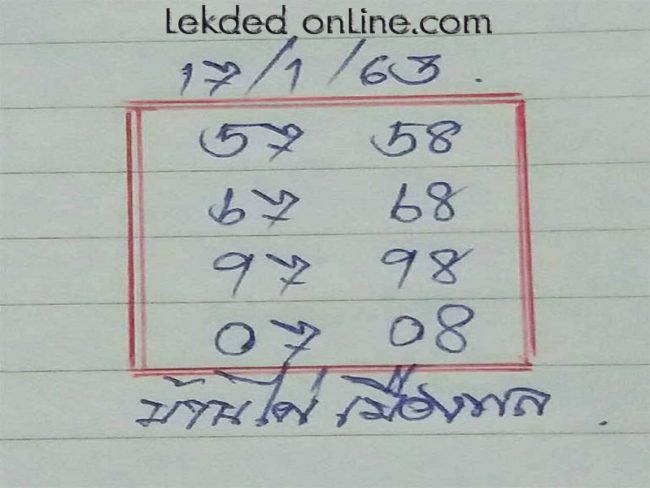 Lekded online.com
17/1/63.
57 58
67 68
97 98
07 08
บ้านไผ่ เมืองพล.